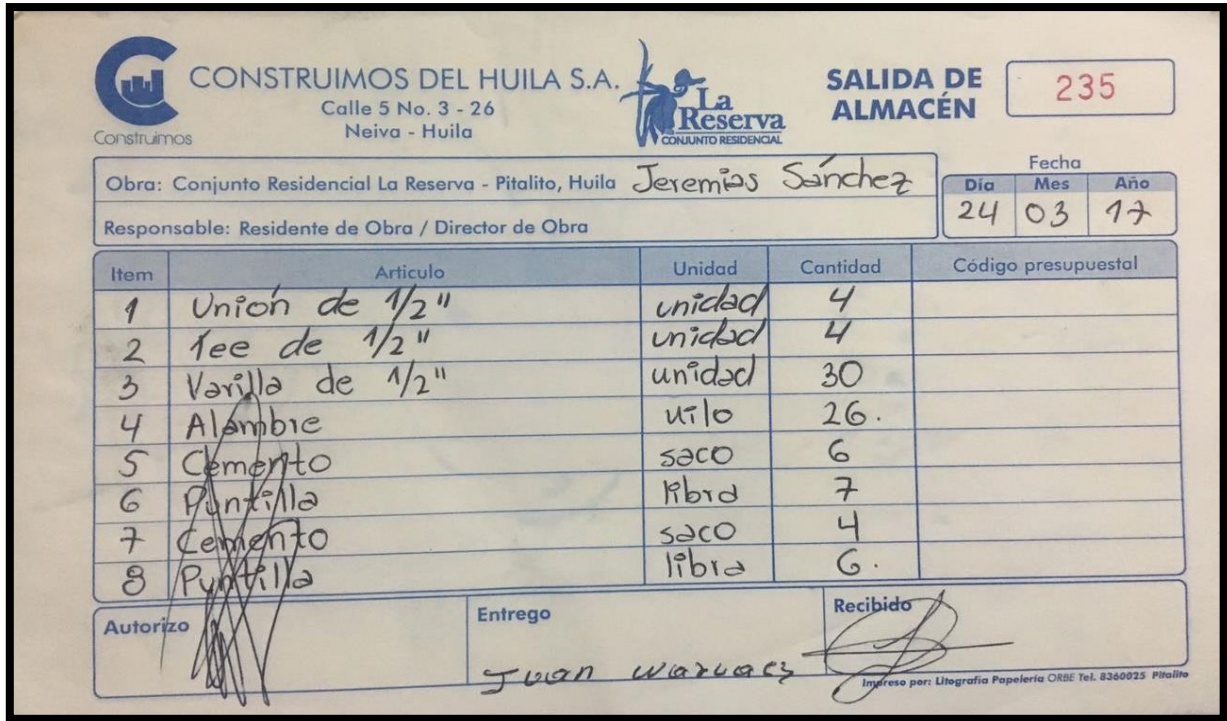 CONSTRUIMOS DEL HUILA S.A.
Calle 5 No. 3 - 26
Neiva - Huila
Construimos
La
Reserva
CONJUNTO RESIDENCIAL
SALIDA DE
ALMACÉN
235
Obra: Conjunto Residencial La Reserva - Pitalito, Huila Jeremias Sánchez
Responsable: Residente de Obra / Director de Obra
Fecha
Día Mes Año
24 03 17
Item Articulo Unidad Cantidad Código presupuestal
1 Unión de 1/2" unidad 4
2 Tee de 1/2" unidad 4
3 Varilla de 1/2" unidad 30
4 Alambre kilo 26.
5 Cemento saco 6
6 Puntilla libra 7
7 Cemento saco 4
8 Puntilla libra 6.
Autorizo Entrego Recibido
Juan
Impreso por: Litografía Papelería ORBE Tel. 8360025 Pitalito